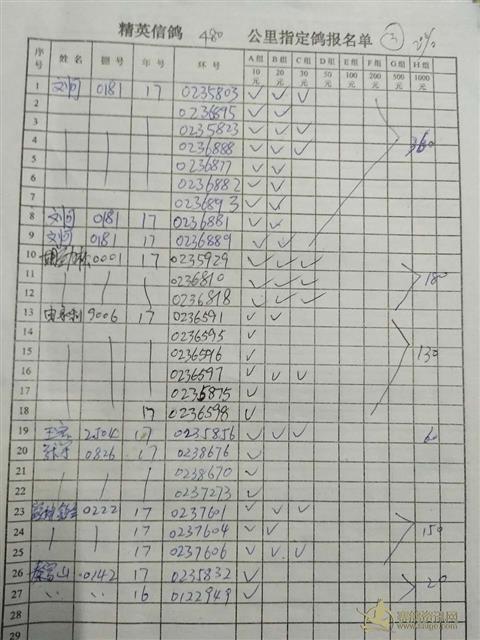 精英信鸽 480 公里指定鸽报名单 ③
序号 姓名 棚号 年号 环号 A组10元 B组20元 C组30元 D组50元 E组100元 F组200元 G组500元 H组1000元
1 文问 0181 17 0235803 ✓ ✓ ✓
2 0236895 ✓ ✓
3 0235823 ✓ ✓ ✓
4 0236888 ✓ ✓ ✓ 360
5 0236877 ✓ ✓
6 0236882 ✓ ✓
7 0236893 ✓ ✓
8 文问 0181 17 0236881 ✓ ✓
9 文问 0181 17 0236889 ✓ ✓ ✓
10 0001 17 0235929 ✓ ✓ ✓
11 0236810 ✓ ✓ ✓ 180
12 0236818 ✓ ✓ ✓
13 9006 17 0236591 ✓ ✓
14 0236595 ✓
15 0236596 ✓ 130
16 0236597 ✓ ✓ ✓
17 0235875 ✓
18 17 0236598 ✓
19 2504 17 0235856 ✓ ✓ ✓ 60
20 0826 17 0238676 ✓
21 0238670 ✓
22 0237273 ✓
23 0222 17 0237601 ✓ ✓ ✓
24 17 0237604 ✓ ✓ 150
25 17 0237606 ✓ ✓ ✓
26 0142 17 0235832 ✓ 20
27 〃 〃 16 0122949 ✓